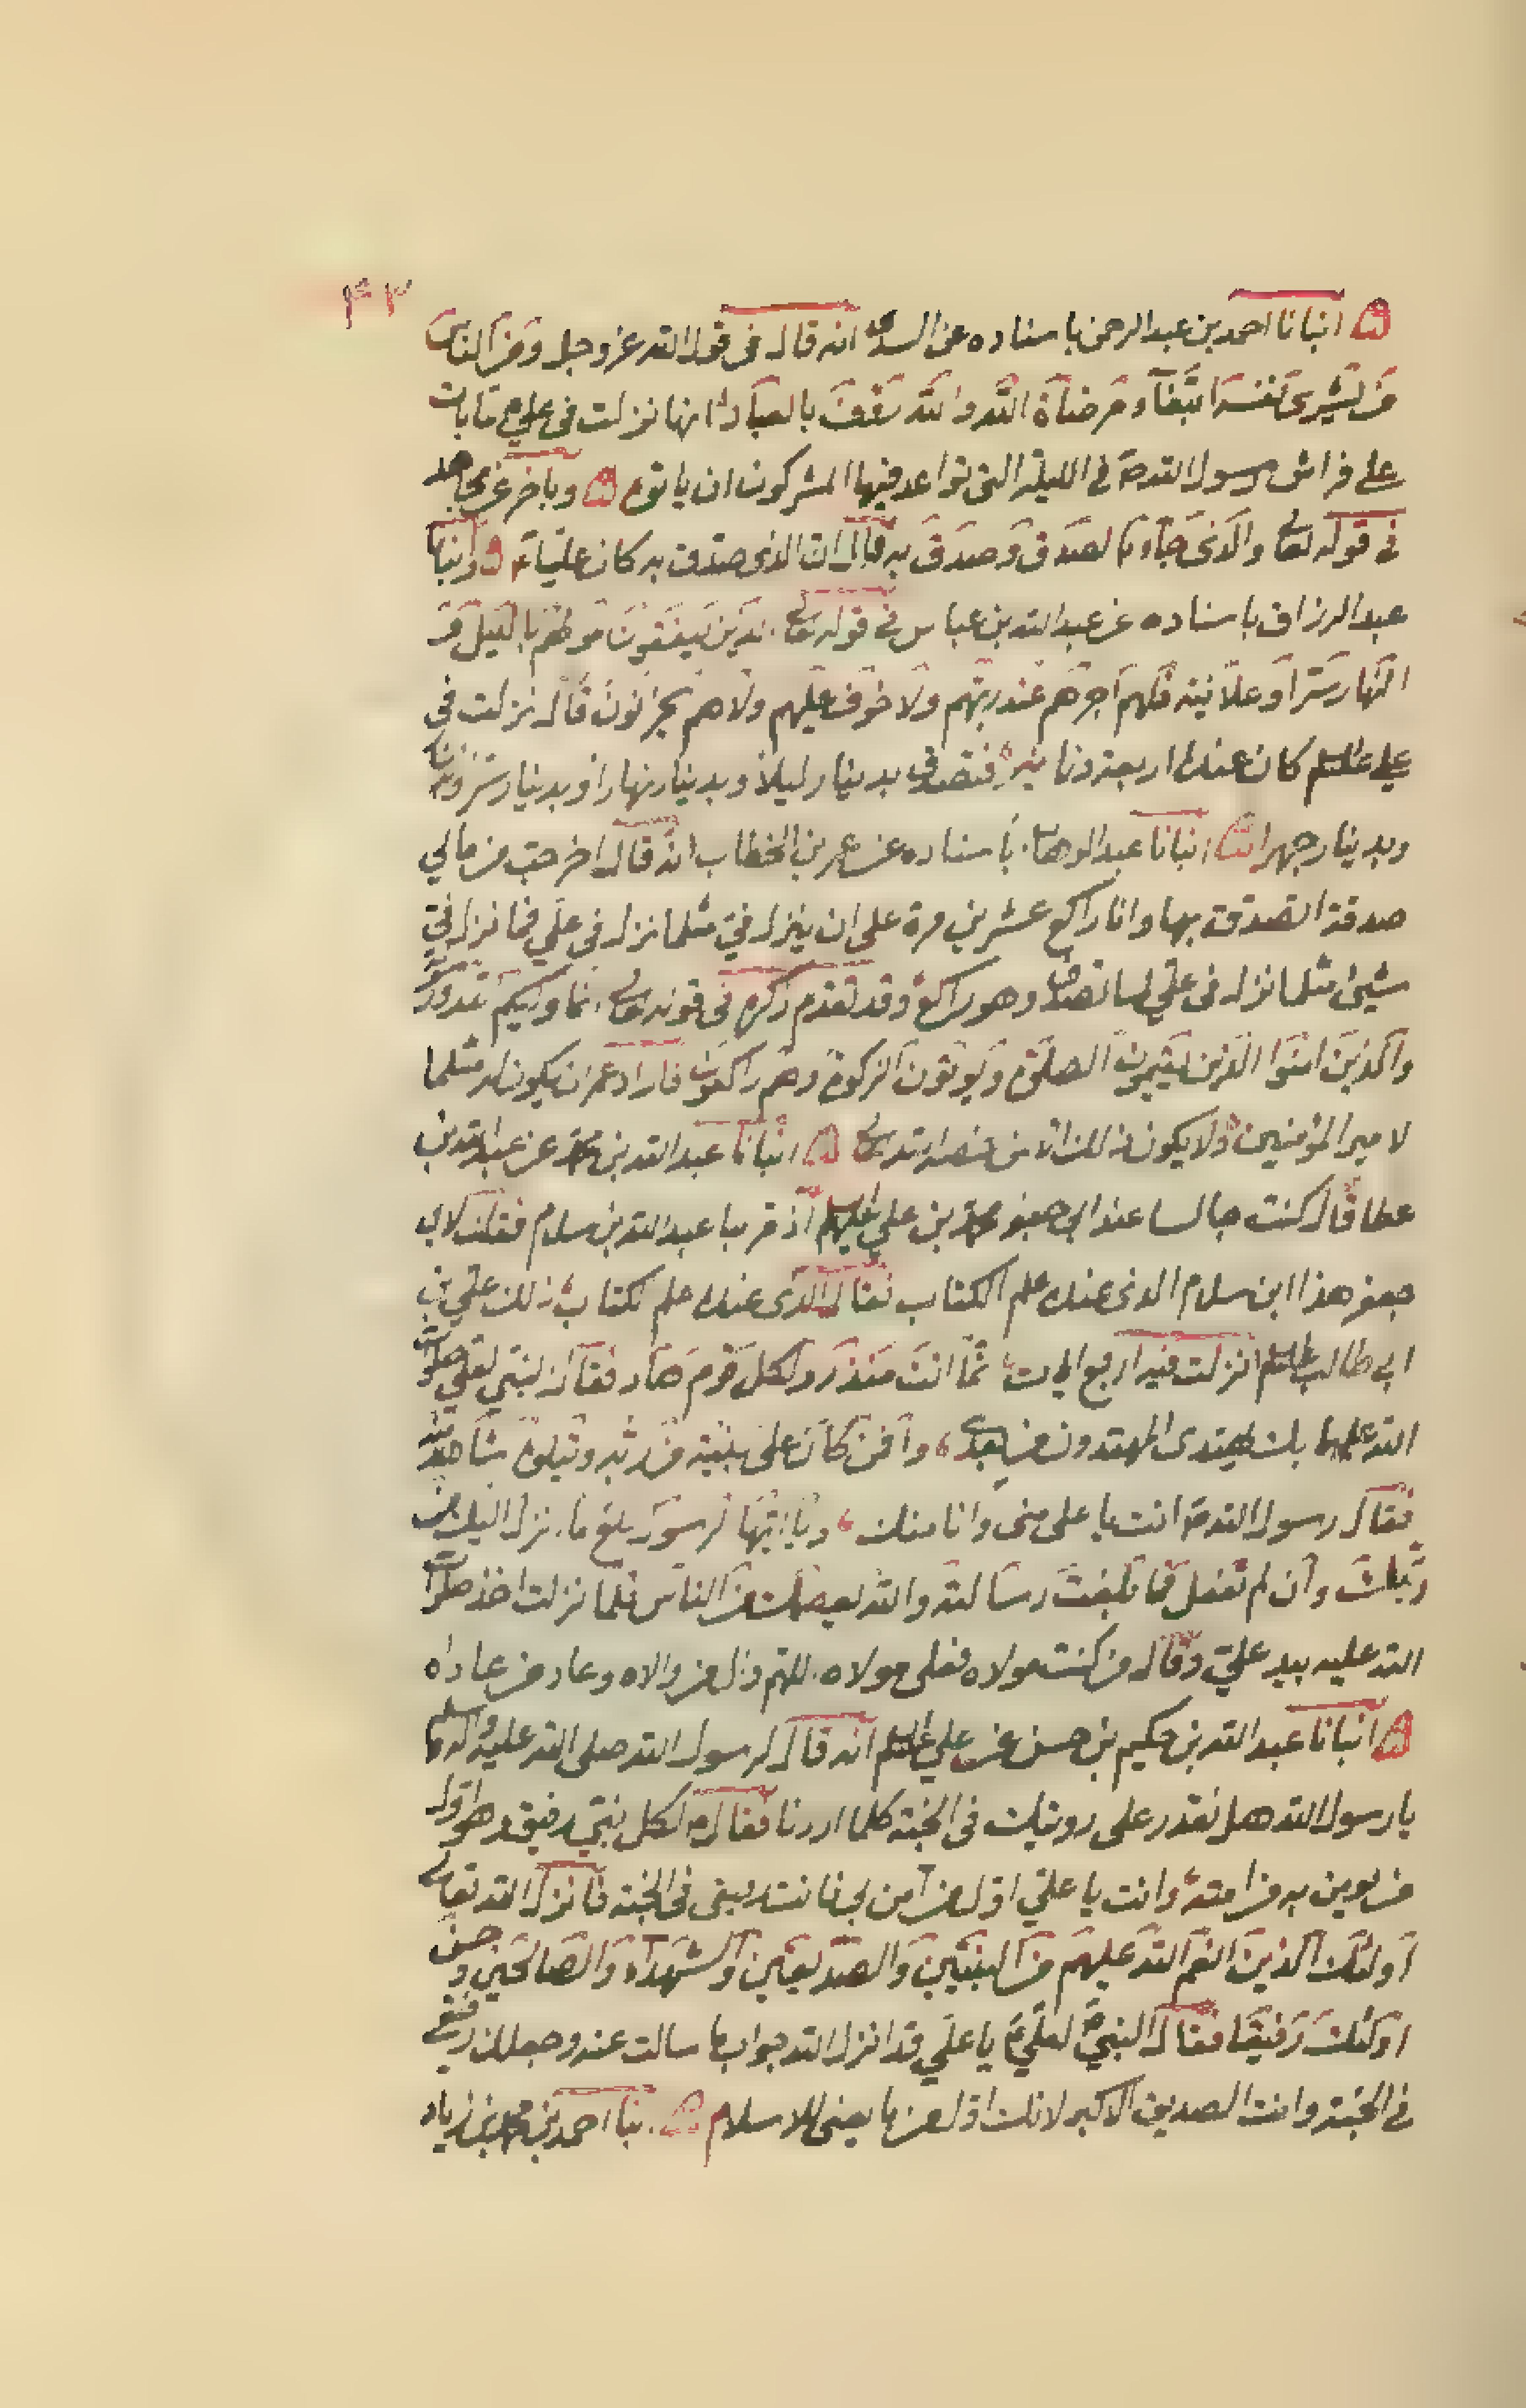 ٤٣
انبانا احمد بن عبد الرحمن باسناده عن السدي انه قال فى قول الله عز وجل وَمِنَ النَّاسِ
مَن يَشْرِى نَفْسَهُ ابْتِغَآءَ مَرضَاةِ اللهِ وَاللهُ رَؤُفٌ بِالعِبَادِ انها نزلت فى علي ع لما بات
على فراش رسول الله ص فى الليلة التى تواعد فيها المشركون ان ياتوه وباخر عن مجاهد
فى قوله تعالى وَالَّذى جَآءَ بِالصِّدقِ وَصَدَّقَ بِهِ قال ان الذى صدق به كان علياً ع وانبانا
عبد الرزاق باسناده عن عبد الله بن عباس فى قوله تعالى الَّذينَ يُنفِقُونَ اَموالَهُم بِاللَّيلِ وَ
النَّهارِ سِرّاً وَعَلانِيَةً فَلَهُم اَجرُهُم عِندَ رَبِّهِم وَلا خَوفٌ عَلَيهِم وَلا هُم يَحزَنُونَ قال نزلت فى
علي عليه السلام كان عنده اربعة دنانير فتصدق بدينار ليلاً وبدينار نهاراً وبدينار سراً
وبدينار جهراً انبانا عبد الوهاب باسناده عن عمر بن الخطاب انه قال اخرجت من مالي
صدقة اتصدق بها وانا راكع عشرين مرة على ان ينزل فيّ مثل ما نزل فى علي فما نزل فيّ
شيئ مثل ما نزل فى علي لما تصدق وهو راكع وقد تقدم ذكره فى قوله تعالى انما وليكم الله ورسوله
وَالَّذينَ امَنُوا الَّذينَ يُقيمُونَ الصَّلوةَ وَيُؤتُونَ الزَّكوةَ وَهُم راكِعُونَ فاراد عمر ان يكون له مثل ما
لامير المؤمنين ولا يكون ذلك الا من خصه الله تعالى انبانا عبد الله بن محمد عن عبد الله بن
عطا قال كنت جالسا عند ابى جعفر محمد بن علي عليهم السلام اذ مر بنا عبد الله بن سلام فقلت لابي
جعفر هذا ابن سلام الذى عنده علم الكتاب فقال الذى عنده علم الكتاب ذلك علي بن
ابي طالب عليه السلام انزلت فيه اربع ايات انما اَنتَ مُنذِرٌ وَلِكُلِّ قَومٍ هَادٍ فقال النبي لعلي صلوات
الله عليهما بك يهتدى المهتدون من بعدي واَفَمَن كانَ عَلى بَيِّنَةٍ مِن رَبِّهِ وَيَتلُوهُ شاهِدٌ مِنهُ
فقال رسول الله ص انت يا على منى وانا منك ويا ايُّهَا الرَّسولُ بلغ ما انزل اليك من
رَبِّكَ وَاِن لَم تَفعَل فَما بَلَّغتَ رِسالَتَهُ وَاللهُ يَعصِمُكَ مِنَ النّاسِ فلما نزلت اخذ صلوات
الله عليه بيد علي وقال من كنت مولاه فعلى مولاه اللهم وال من والاه وعاد من عاداه
انبانا عبد الله بن حكيم بن حسن عن علي عليه السلام انه قال لرسول الله صلى الله عليه واله وسلم
يا رسول الله هل نقدر على رويتك فى الجنة كلما اردنا فقال ص لكل نبي رفيق وهو اول
من يومن به من امته وانت يا علي اول من آمن بى فانت رفيقى فى الجنة فانزل الله تعالى
اُولئِكَ الَّذينَ اَنعَمَ اللهُ عَلَيهِم مِنَ النَّبِيّينَ وَالصِّدّيقينَ وَالشُّهَدآءِ وَالصّالِحينَ وَحَسُنَ
اُولئِكَ رَفيقًا فقال النبي ص لعلي ع يا علي قد انزل الله جواب ما سالت عنه وجعلك رفيقى
فى الجنة وانت الصديق الاكبر لانك اول من بايعنى للاسلام انبانا احمد بن محمد بن زياد